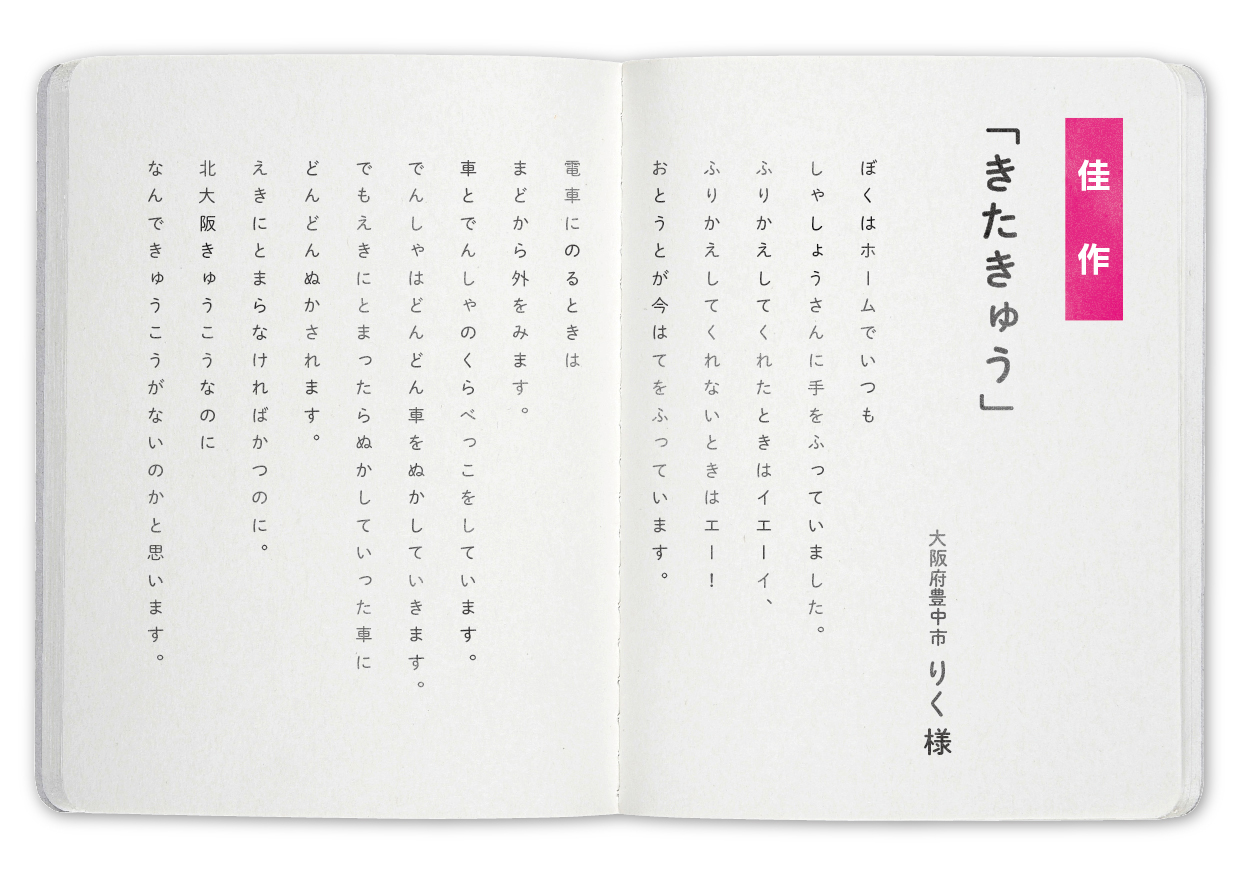 佳作
「きたきゅう」
大阪府豊中市 りく様
ぼくはホームでいつも
しゃしょうさんに手をふっていました。
ふりかえしてくれたときはイエーイ、
ふりかえしてくれないときはエー！
おとうとが今はてをふっています。
電車にのるときは
まどから外をみます。
車とでんしゃのくらべっこをしています。
でんしゃはどんどん車をぬかしていきます。
でもえきにとまったらぬかしていった車に
どんどんぬかされます。
えきにとまらなければかつのに。
北大阪きゅうこうなのに
なんできゅうこうがないのかと思います。